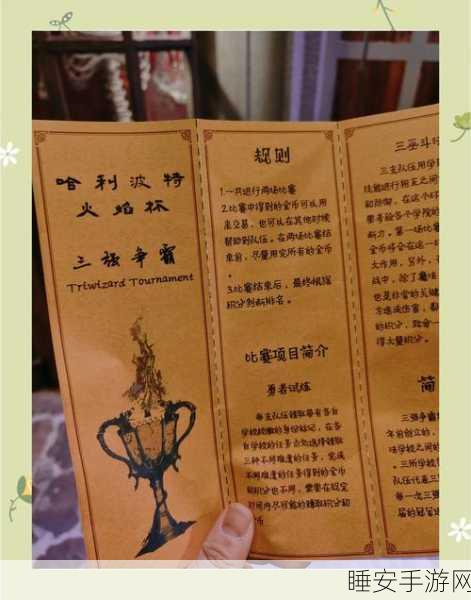 哈利波特
火焰杯
三强争霸
Triwizard Tournament
规则
1.一共进行两场比赛
2.比赛中得到的金币可以用
来交易,也可以在其他时候
帮助到队伍。在两场比赛结
束前,尽量用完所有的金币
。
3.比赛结束后,最终根据
积分判断排名。
比赛项目简介
勇者试炼
每支队伍领取带有各自
学校校徽的身份标记,在各
自学校的任务点处选择领取
三种不同难度的任务,完成
不同难度的任务得到的金币
和积分也不同,需要在规定
时间内尽可能的赚取积分和
金币
三巫斗
三支队伍用学
技能进行相互之间
和防御,在这个环
要考验各个学院的
断力。第一场比赛
金币将会在这一
大作用,另外,
战中,除了魔咒
也是非常的关键
方造成伤害,
的积分,致命一
得大量积分。
简
三强争霸
年前创立的,
法学校
三所学校
队伍代表三
每一次三强
届的冠军
睡安手游网